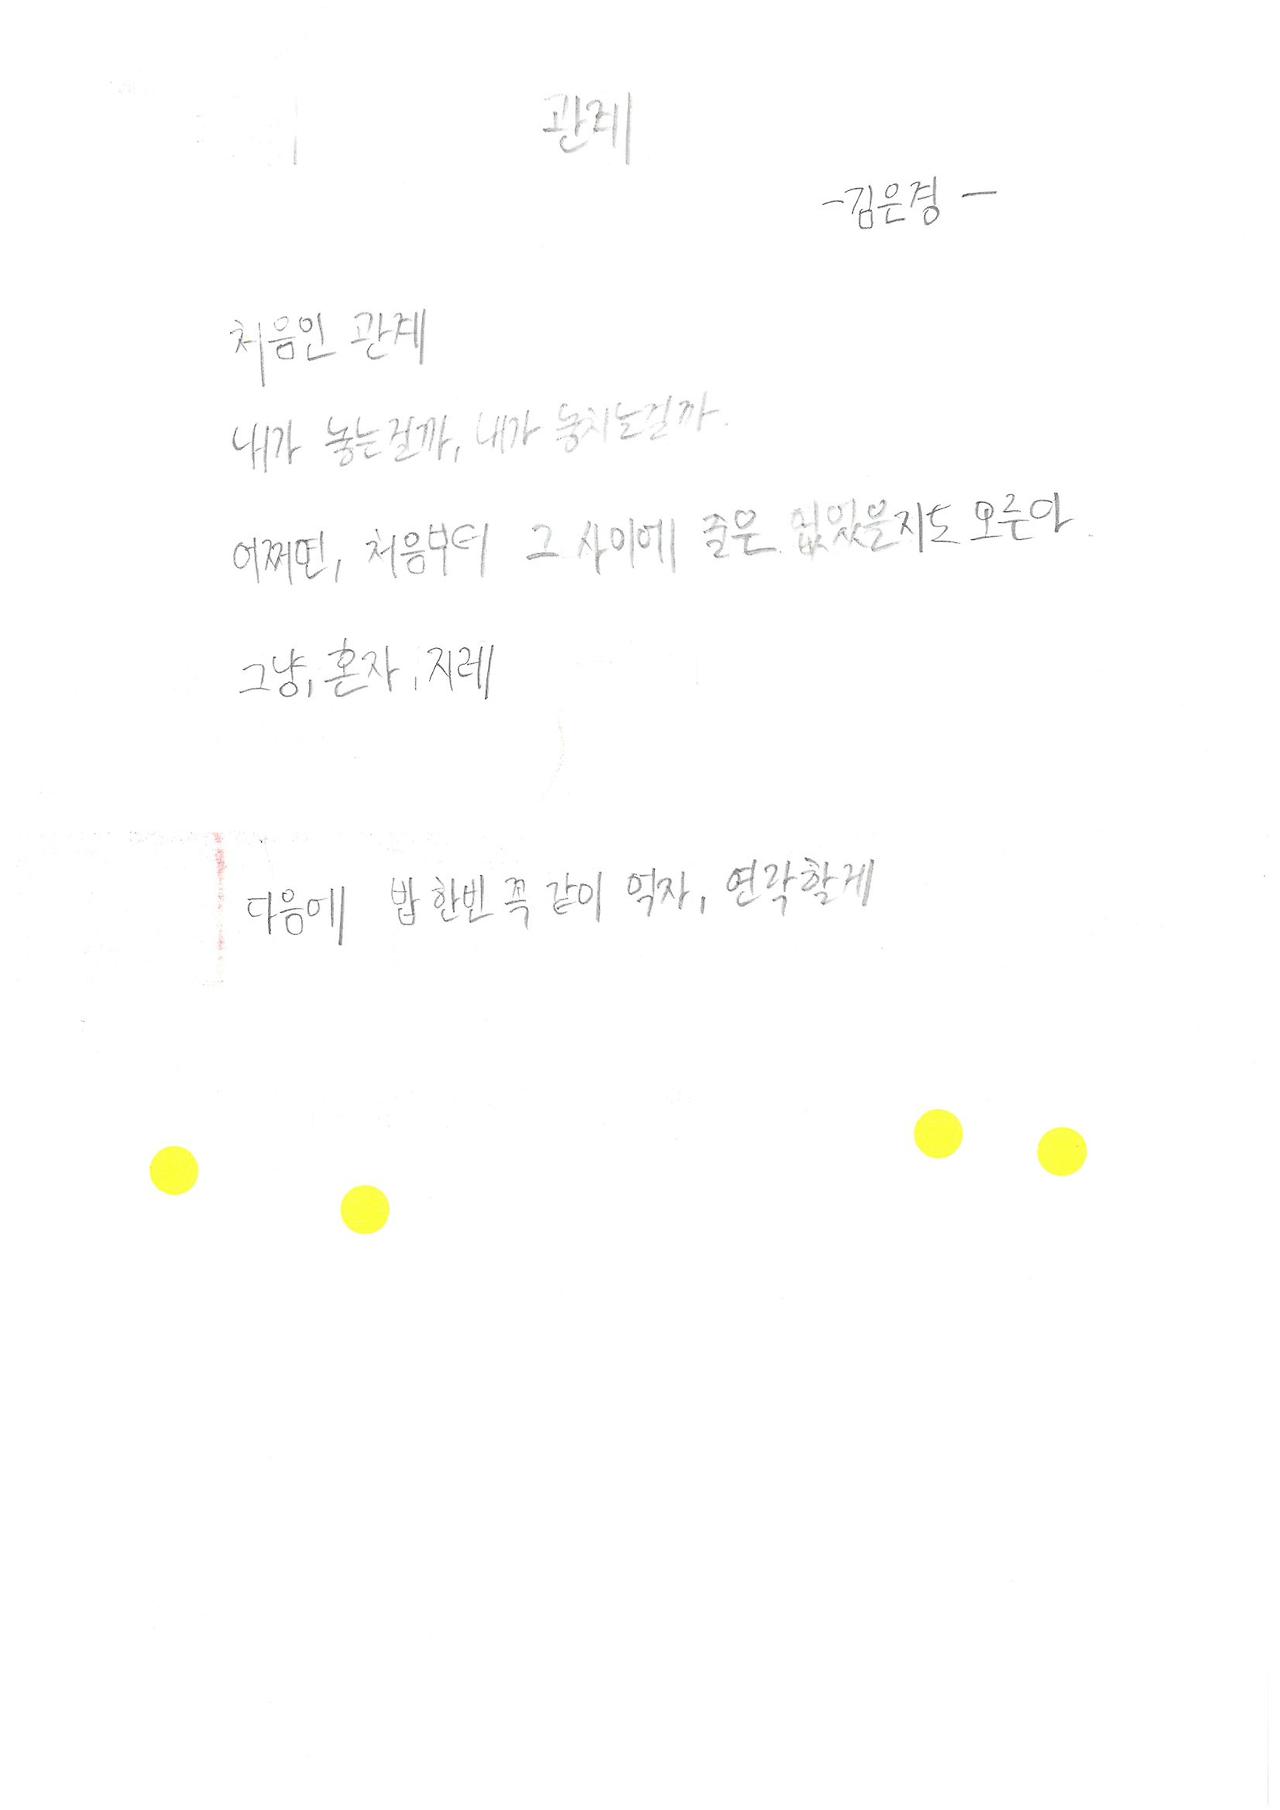 관계
-김은경-
처음인 관계
내가 놓는걸까, 내가 놓치는걸까.
어쩌면, 처음부터 그 사이에 줄은 없었을지도 모른다.
그냥, 혼자, 지레
다음에 밥 한번 꼭 같이 먹자, 연락할게